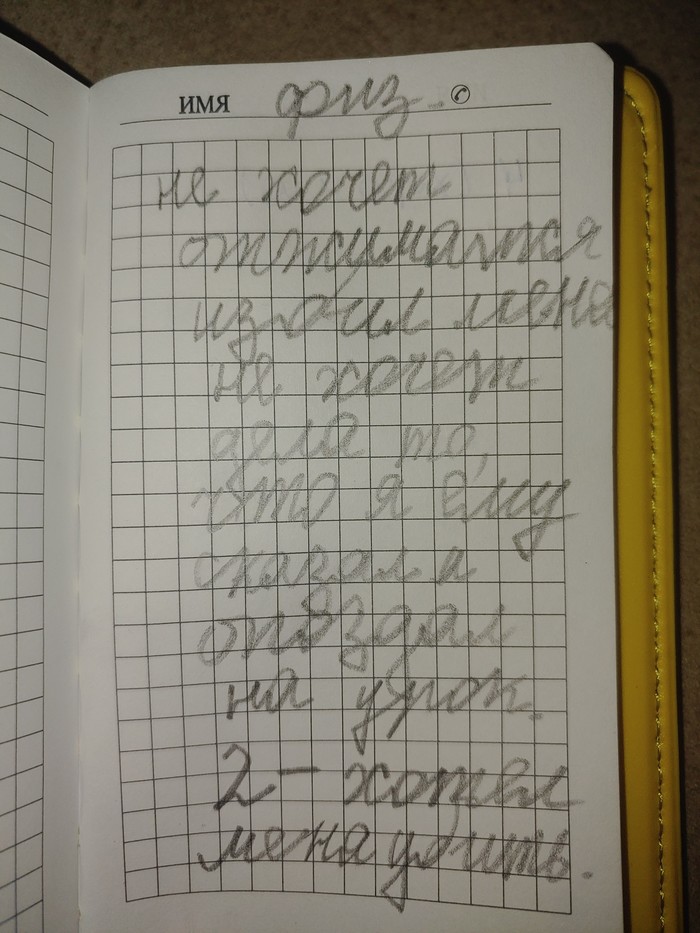 ИМЯ физ.
не хочет
отжиматся
избил меня
не хочет
дела то,
что я ему
сказал и
опоздал
на урок.
2 - хотел
меня убить.